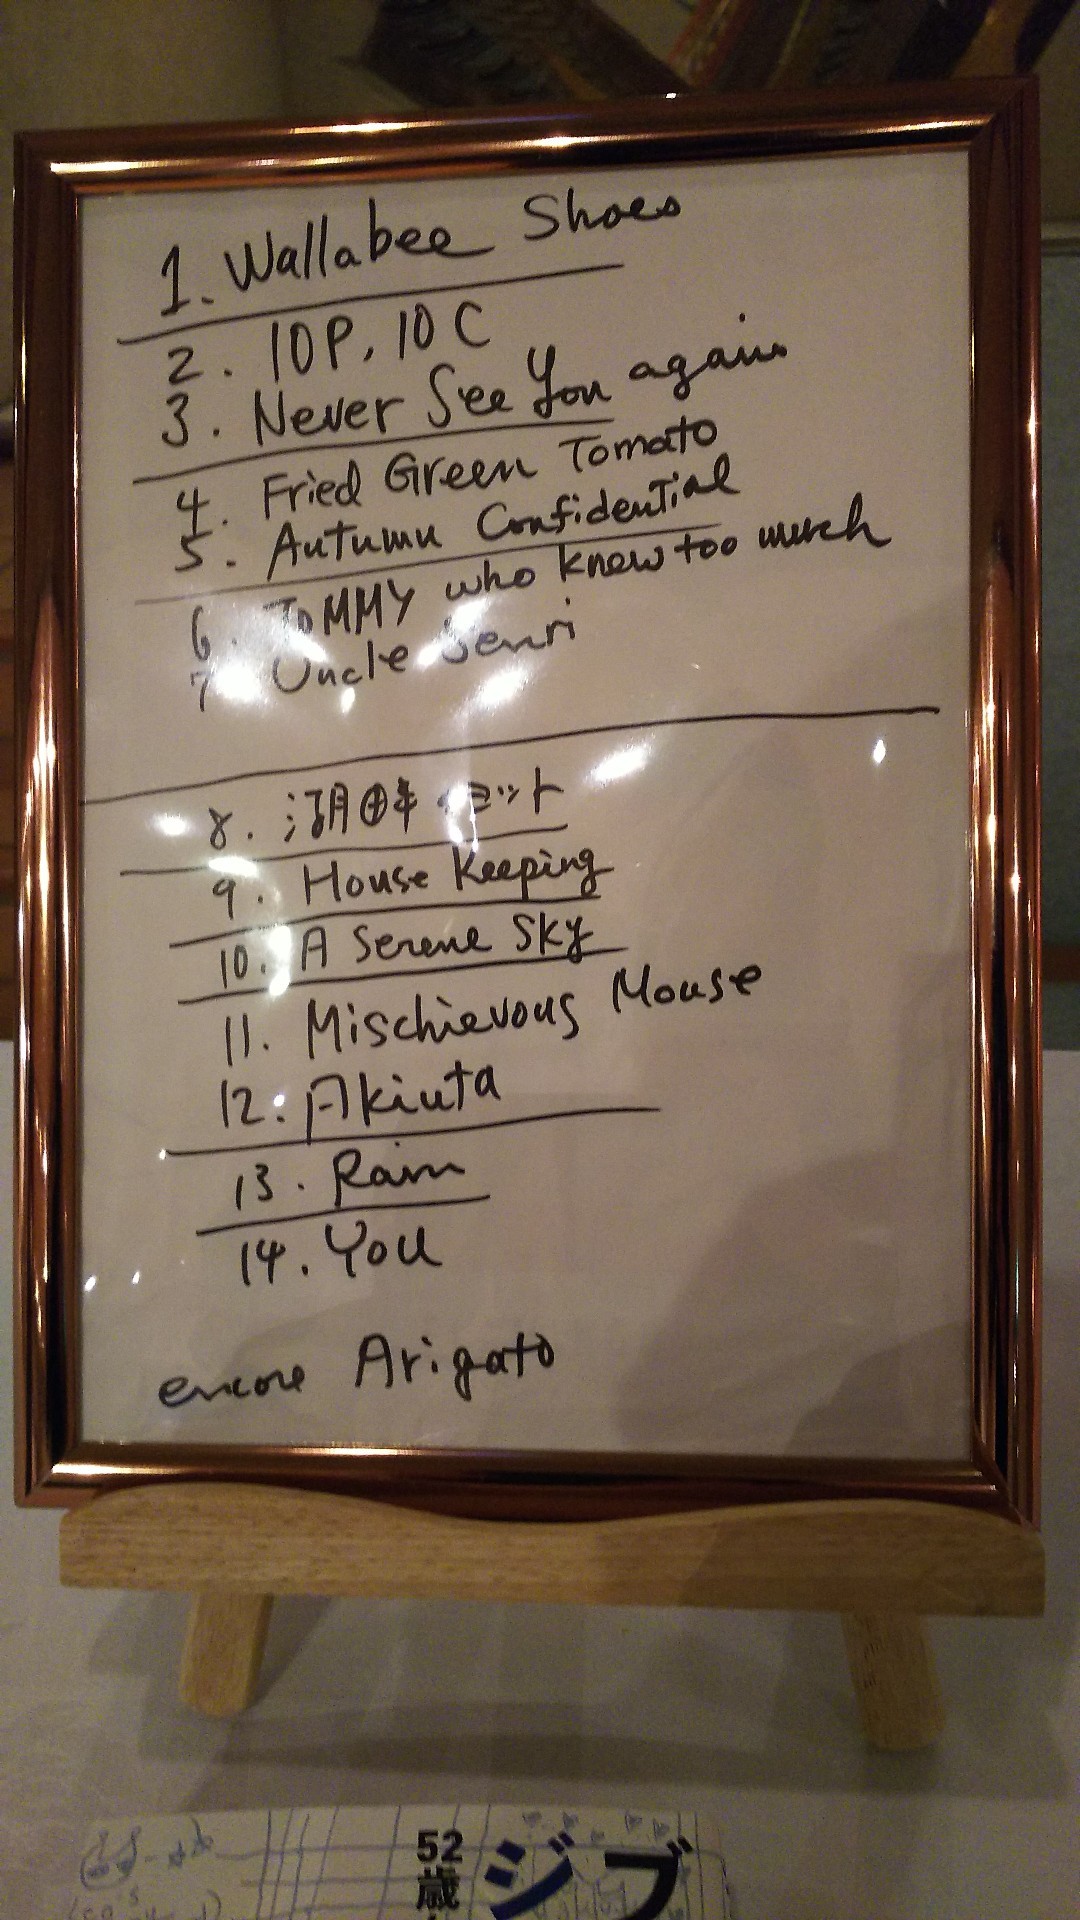 1. Wallabee Shoes
2. 10P, 10C
3. Never See You again
4. Fried Green Tomato
5. Autumn Confidential
6. TOMMY who knew too much
7 Uncle Senri
8. セット
9. House Keeping
10. A Serene Sky
11. Mischievous Mouse
12. Akiuta
13. Rain
14. You
encore Arigato
52歳
ジブ